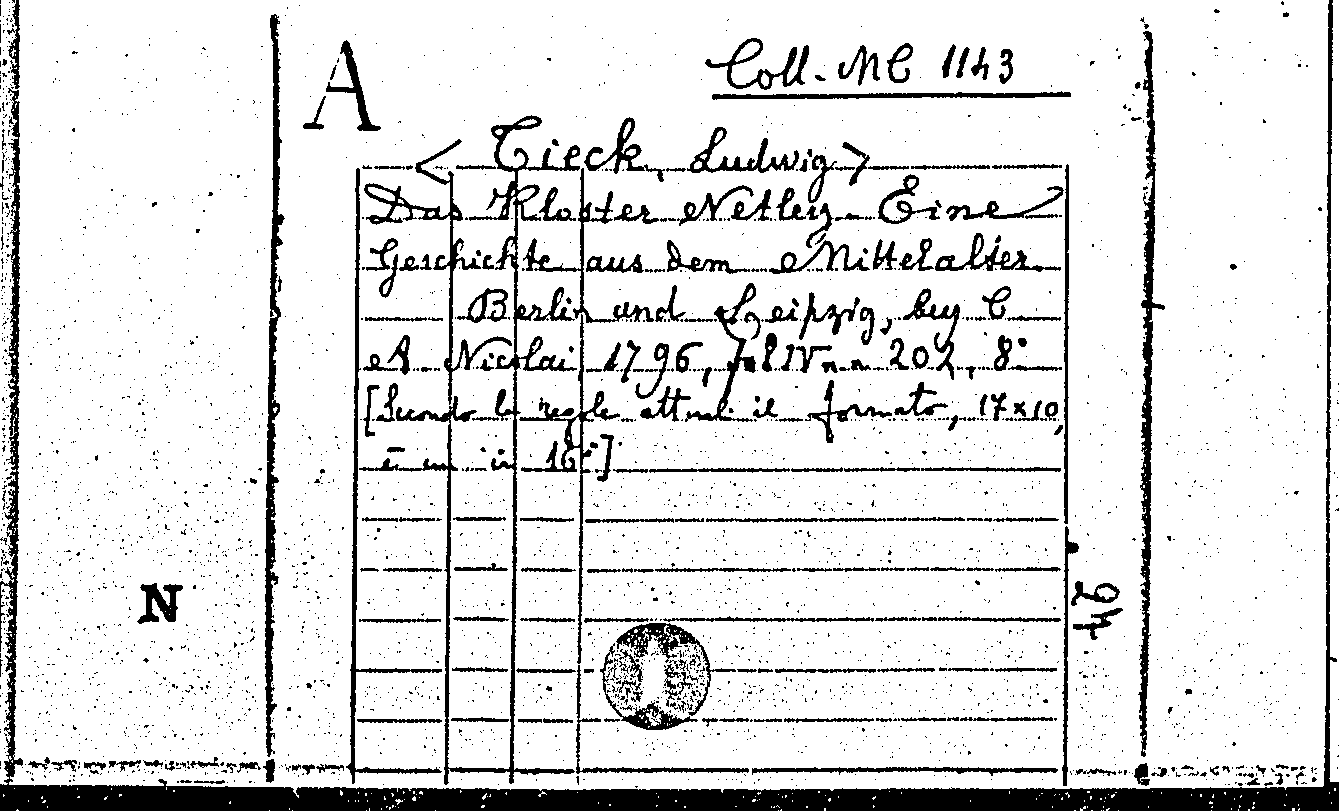 A
Coll. MC 1143
< Tieck, Ludwig >
Das Kloster Netley. Eine
Geschichte aus dem Mittelalter.
Berlin und Leipzig, bey C
A. Nicolai, 1796, IV 202, 8°
[Secondo le regole attuali il formato, 17x10,
è un in 16°]
N
24